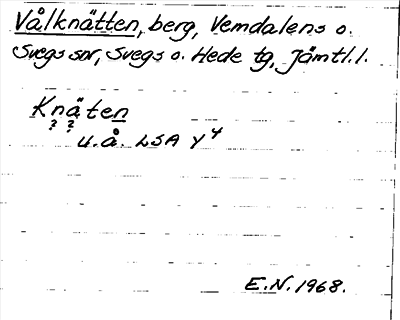 Vålknätten, berg, Vemdalens o.
Svegs snr, Svegs o. Hede tg, Jämtl.l.
Knäten
? ?
u.å. LSA Y4
E.N. 1968.